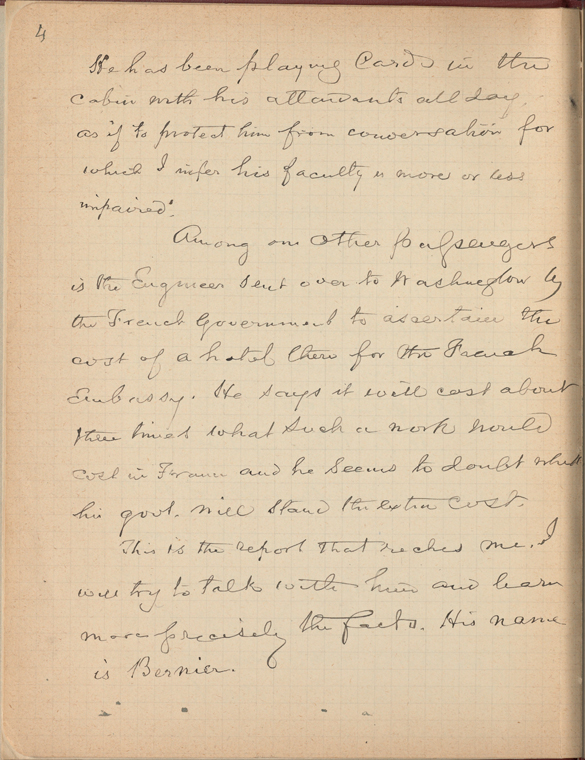 4
He has been playing Cards in the
cabin with his attendants all day,
as if to protect him from conversation for
which I infer his faculty is more or less
impaired.
Among our other passengers
is the Engineer sent over to Washington by
the French Government to ascertain the
cost of a hotel there for the French
Embassy. He says it will cost about
three times what such a work would
cost in France and he seems to doubt whet
his govt. will stand the extra cost.
This is the report that reaches me. I
will try to talk with him and learn
more precisely the facts. His name
is Bernier.